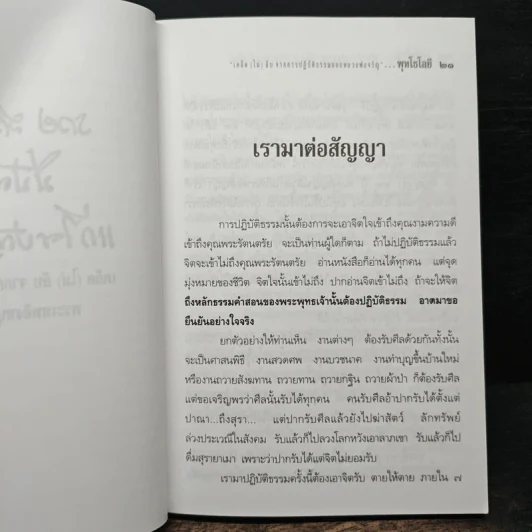 "เคล็ด (ไม่) ลับ จากการปฏิบัติธรรมของหลวงพ่อจรัญ"...พุทโธโลยี ๒๑
เรามาต่อสัญญา
การปฏิบัติธรรมนั้นต้องการจะเอาจิตใจเข้าถึงคุณงามความดี
เข้าถึงคุณพระรัตนตรัย จะเป็นท่านผู้ใดก็ตาม ถ้าไม่ปฏิบัติธรรมแล้ว
จิตจะเข้าไม่ถึงคุณพระรัตนตรัย อ่านหนังสือก็อ่านได้ทุกคน แต่จุด
มุ่งหมายของชีวิต จิตใจนั้นเข้าไม่ถึง ปากอ่านจิตเข้าไม่ถึง ถ้าจะให้จิต
ถึงหลักธรรมคำสอนของพระพุทธเจ้านั้นต้องปฏิบัติธรรม อาตมาขอ
ยืนยันอย่างใจจริง
ยกตัวอย่างให้ท่านเห็น งานต่างๆ ต้องรับศีลด้วยกันทั้งนั้น
จะเป็นศาสนพิธี งานสวดศพ งานบวชนาค งานทำบุญขึ้นบ้านใหม่
หรืองานถวายสังฆทาน ถวายทาน ถวายกฐิน ถวายผ้าป่า ก็ต้องรับศีล
แต่ขอเจริญพรว่าศีลนั้นรับได้ทุกคน คนรับศีลอ้าปากรับได้ตั้งแต่
ปาณา...ถึงสุรา... แต่ปากรับศีลแล้วยังไปฆ่าสัตว์ ลักทรัพย์
ล่วงประเวณีในสังคม รับแล้วก็ไปลวงโลกหวังเอาลาภเขา รับแล้วก็ไป
ดื่มสุรายาเมา เพราะว่าปากรับได้แต่จิตไม่ยอมรับ
เรามาปฏิบัติธรรมครั้งนี้ต้องเอาจิตรับ ตายให้ตาย ภายใน ๗